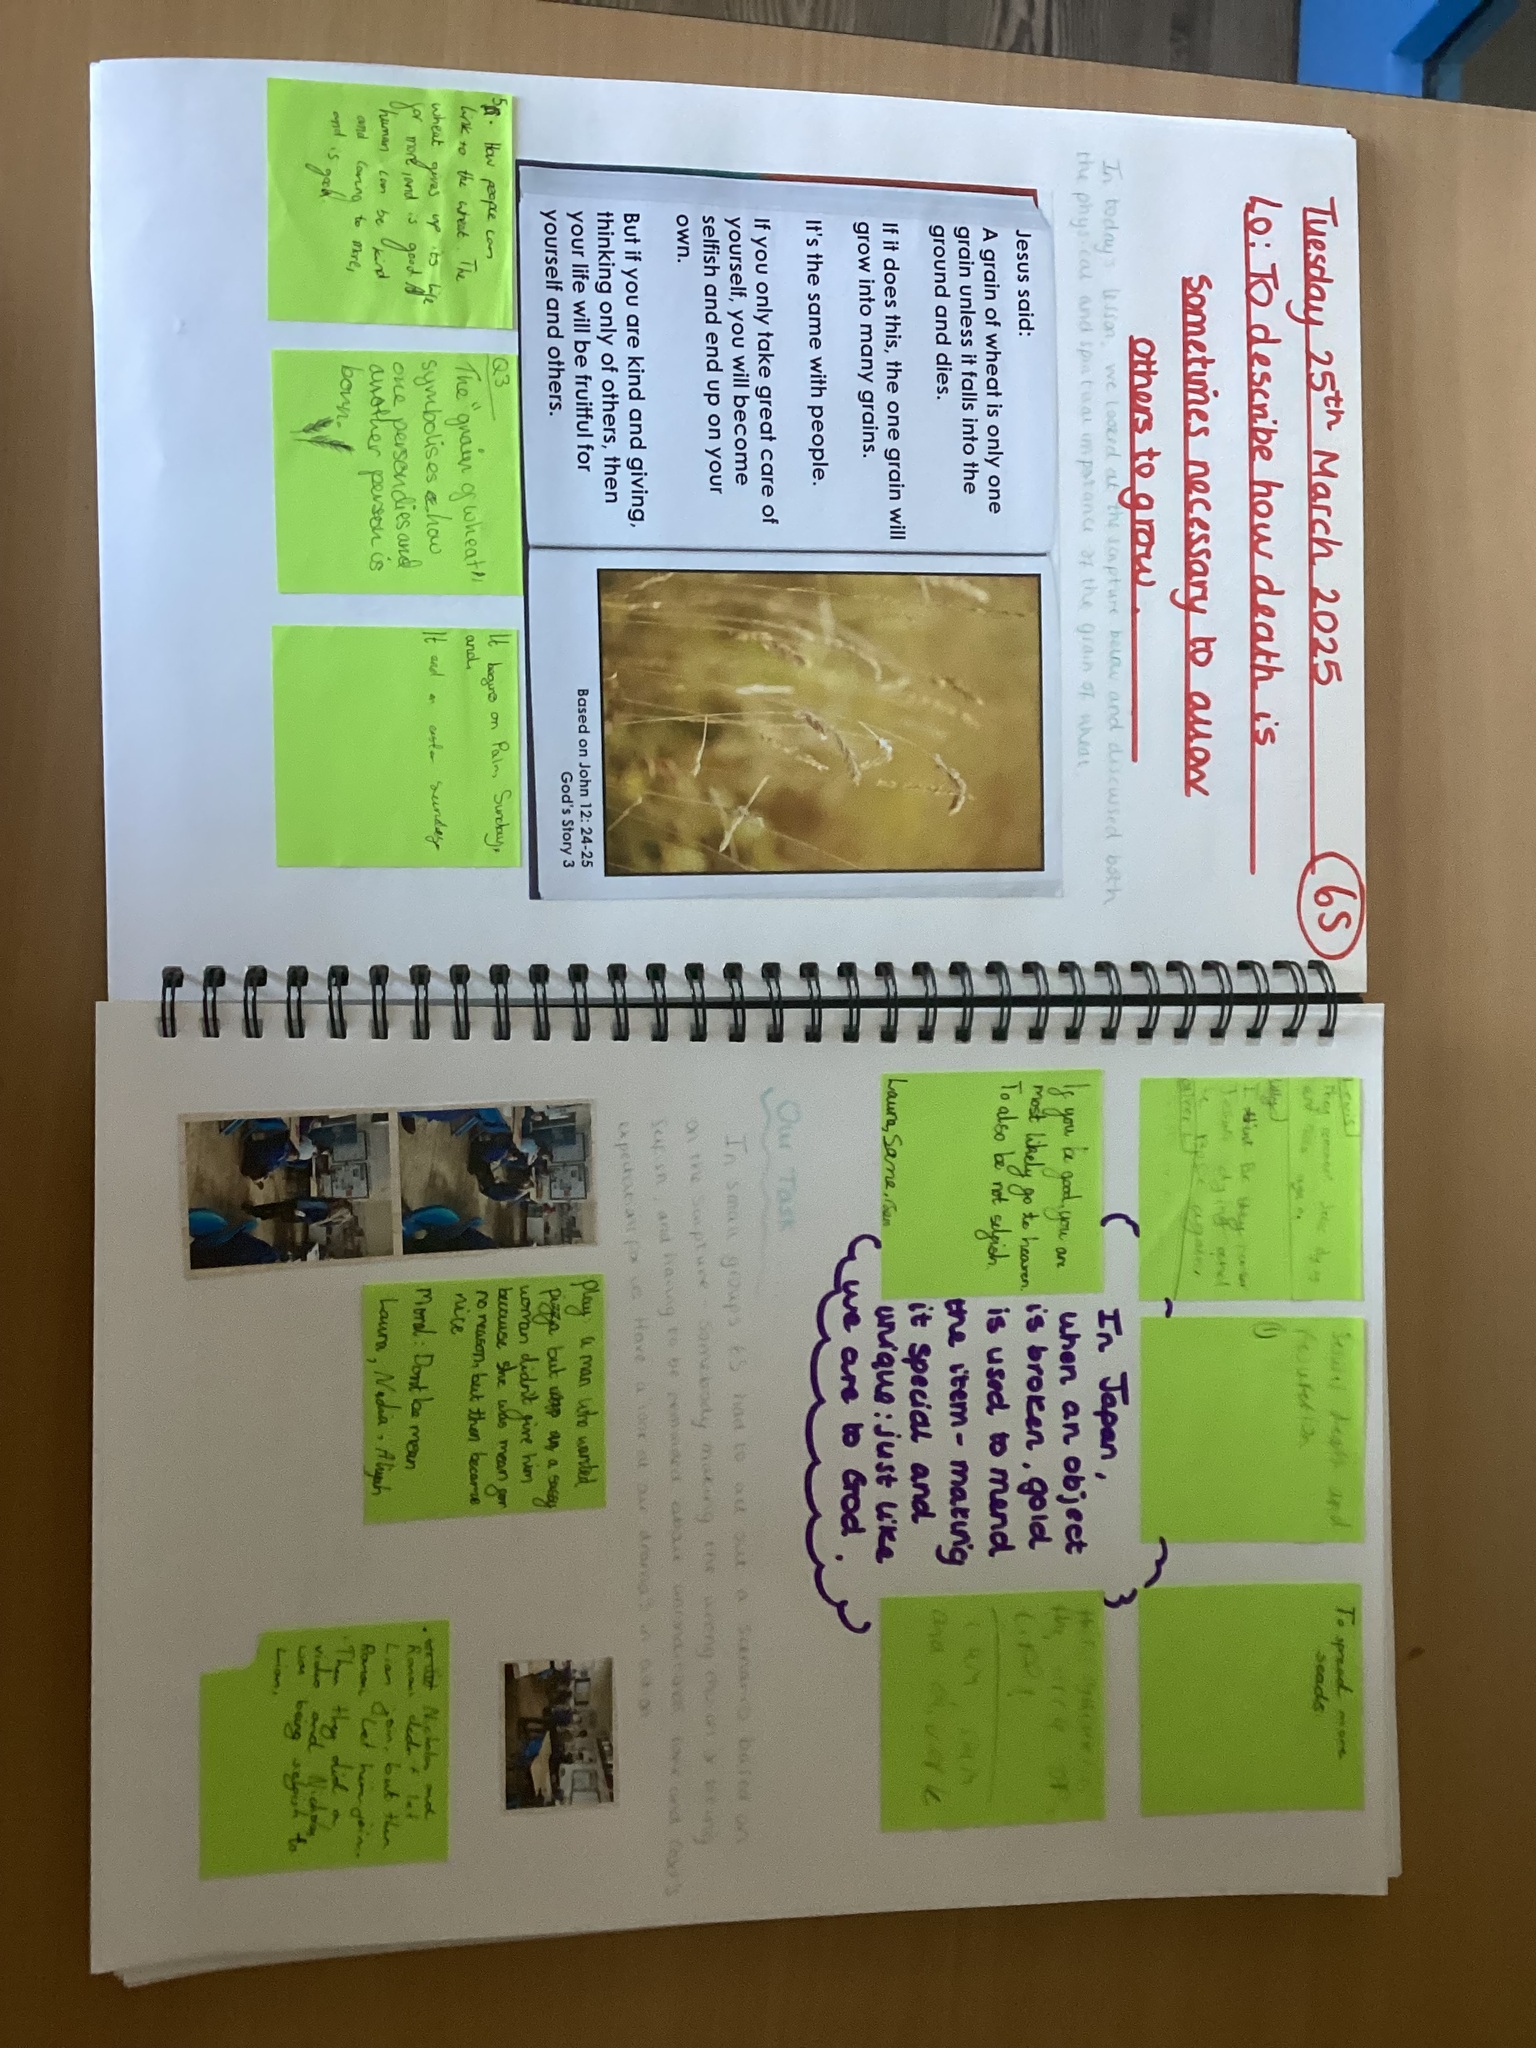 Tuesday 25th March 2025
6S
LO: To describe how death is
sometimes necessary to allow
others to grow.
In today's lesson, we looked at the scripture below and discussed both
the physical and spiritual importance of the grain of wheat.
Jesus said:
A grain of wheat is only one
grain unless it falls into the
ground and dies.
If it does this, the one grain will
grow into many grains.
It's the same with people.
If you only take great care of
yourself, you will become
selfish and end up on your
own.
But if you are kind and giving,
thinking only of others, then
your life will be fruitful for
yourself and others.
Based on John 12: 24-25
God's Story 3
How people can
link to the wheat. The
wheat gives up its life
for more, and is good
human can be kind
and caring to more,
and is good
Q3
The "grain of wheat"
symbolises how
one person dies and
another person is
born.
It begins on Palm Sunday,
and,
It end on easter sunday
Lewis
They remember Jesus dying
and rises again
I think Be they rember
Jesus dying and
Jesus' death and
resurection
①
To spread more
seeds.
If you be good, you are
most likely go to heaven.
To also be not selfish.
Laura, Sane,
In Japan,
when an object
is broken, gold
is used to mend
the item - making
it special and
unique: just like
we are to God.
Our Task
In small groups 6S had to act out a scenario based on
the scripture - somebody making the wrong choice or being
selfish, and having to be reminded about unconditional love and God's
expectation for us. Have a look at our dramas in action
Play: a man who wanted
pizza but a sassy
woman didn't give him
because she was mean for
no reason, but then became
nice
Moral: Dont be mean
Laura, Nadia, Aliyah
Nicholas and
Ronan didn't let
Lian join, but then
Ronan let him join.
Then they did a
video and Nicholas
was being selfish to
Lian,